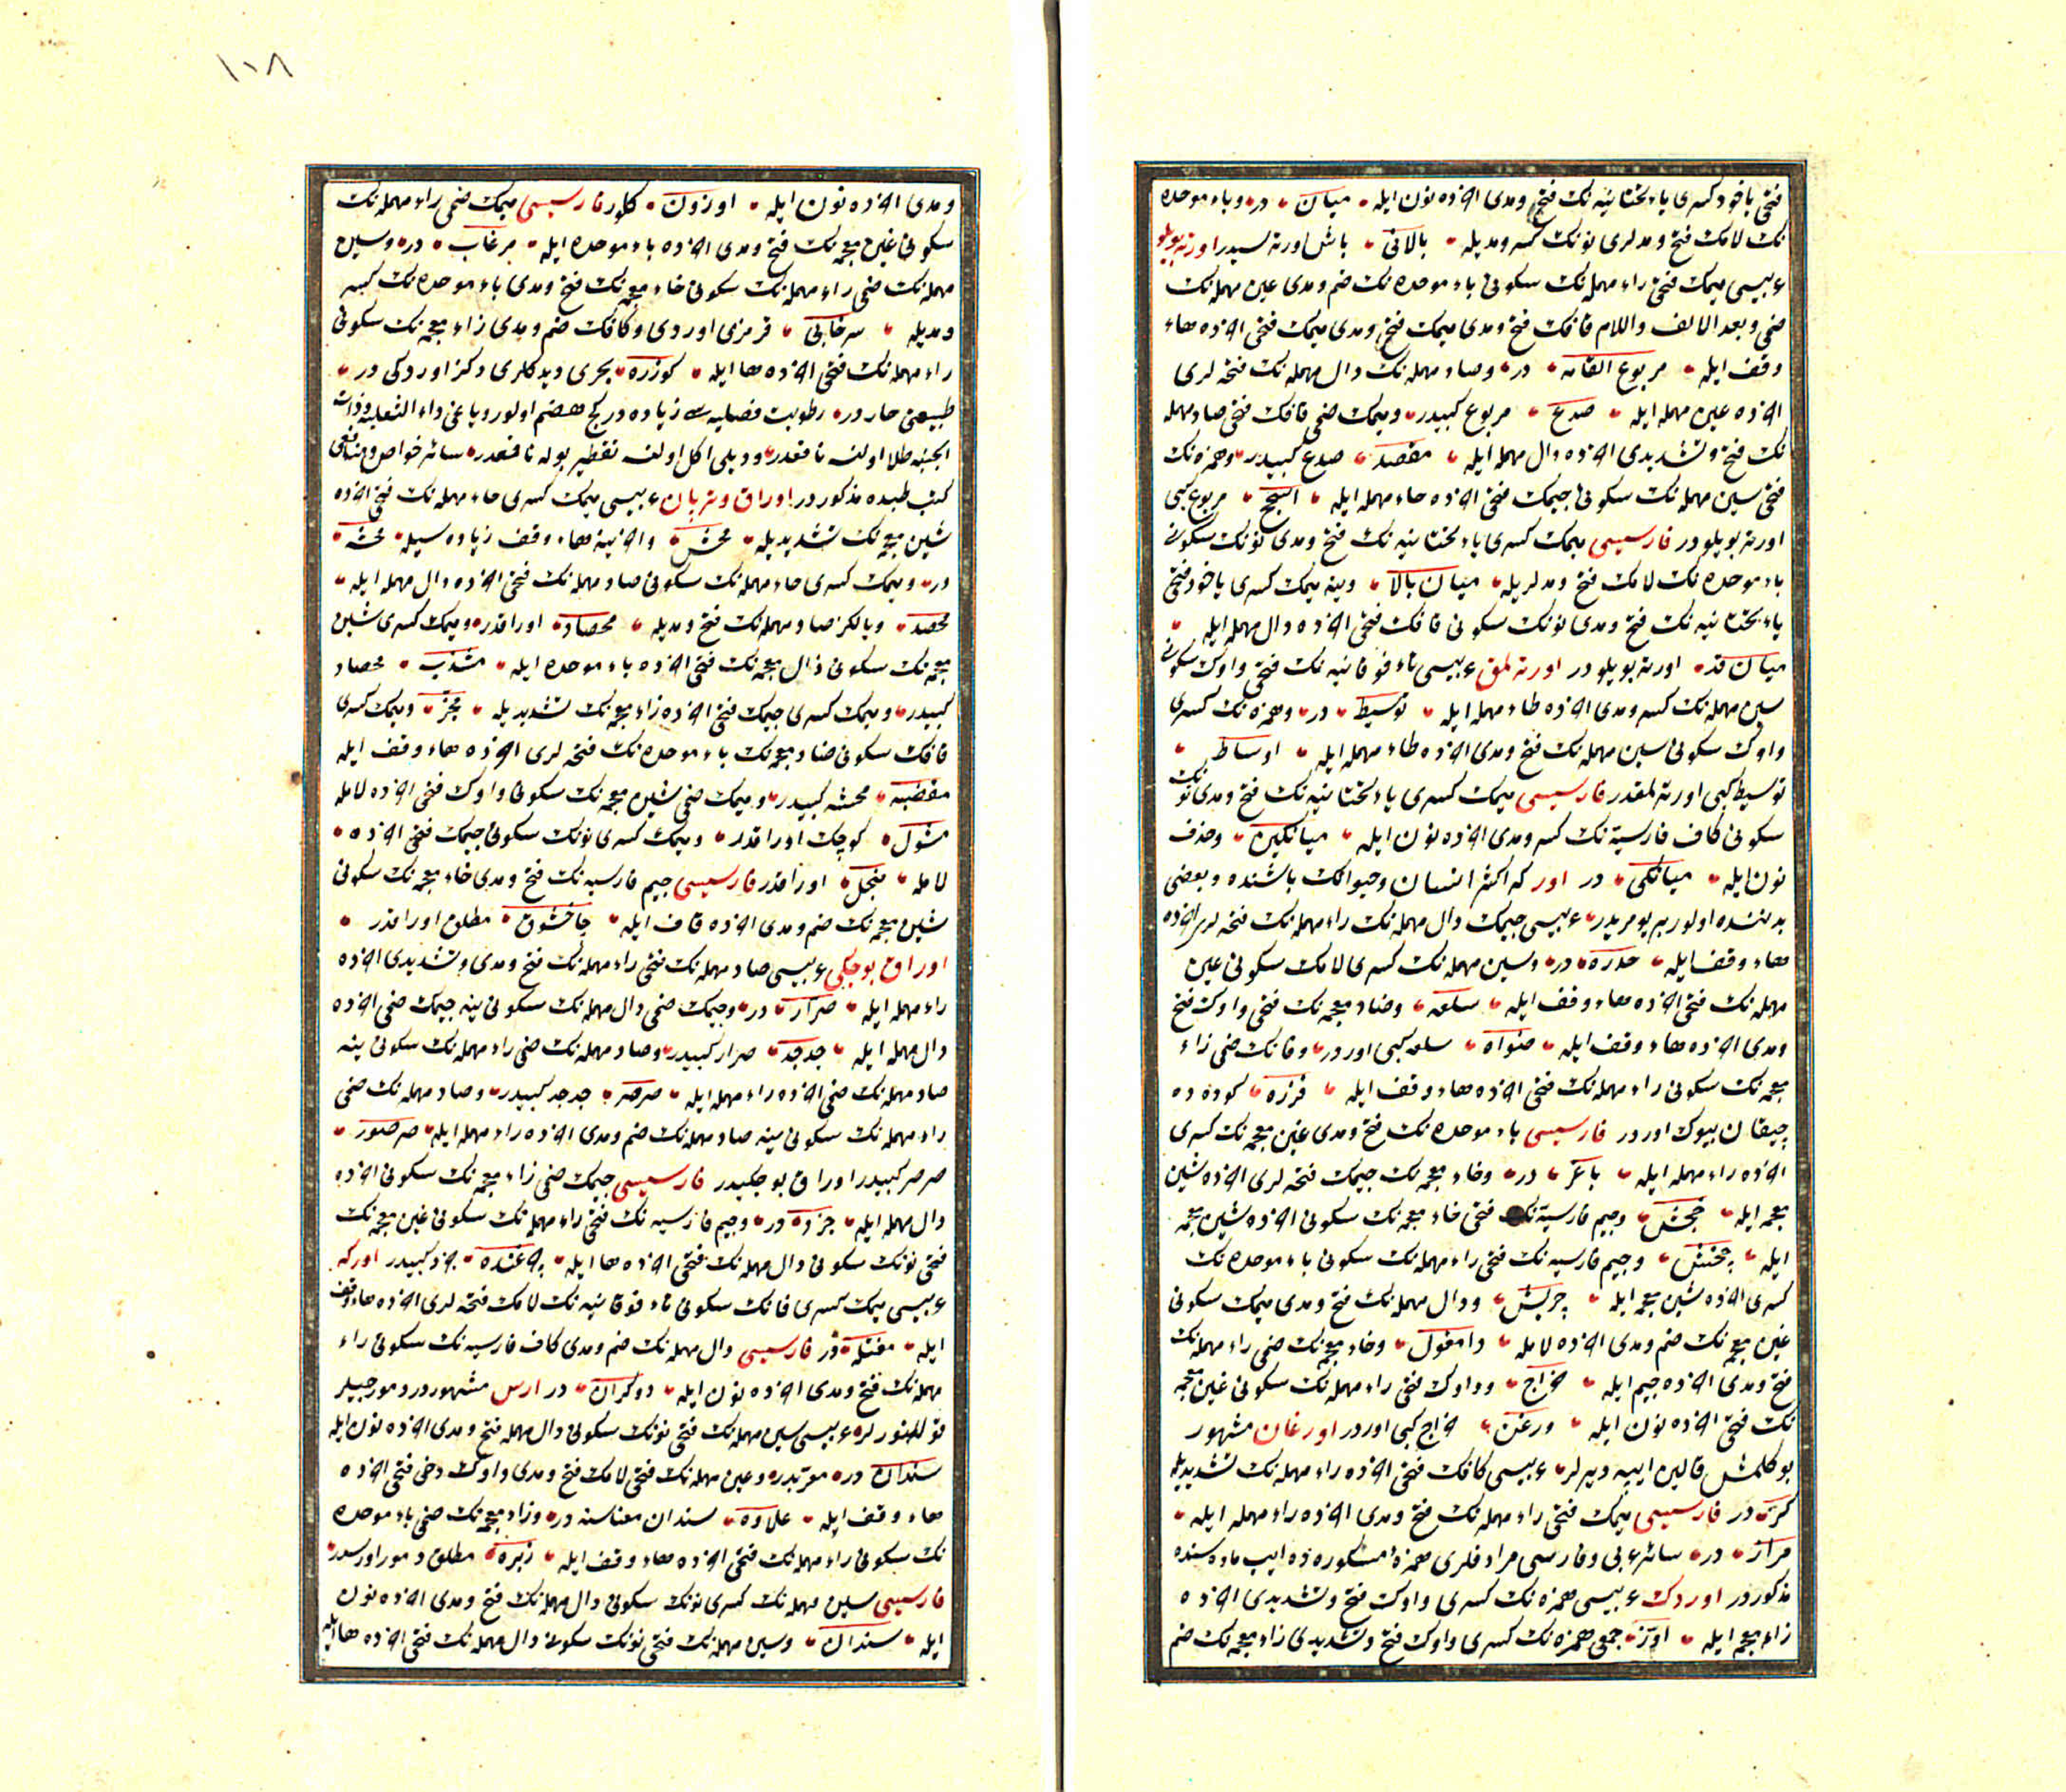 فتحی یاخود کسری یاء تحتانیه نک فتحی ومدی اخرده نون ایله میان در وباء موحده
نک لامک فتح ومدلری نونک کسر ومدیله بالانی باش اورته سیدر اورته بویلو
عربیسی میمک فتحی راء مهمله نک سکونی باء موحده نک ضم ومدی عین مهمله نک
ضمی وبعد الالف واللام قافک فتح ومدی میمک فتحی اخرده هاء
وقف ایله مربوع القامه در وصاد مهمله نک دال مهمله نک فتحه لری
اخرده عین مهمله ایله صدع مربوع کبیدر ومیمک ضمی قافک فتحی صاد مهمله
نک فتح وتشدیدی اخرده دال مهمله ایله مقصد صدع کبیدر وهمزه نک
فتحی سین مهمله نک سکونی جیمک فتحی اخرده حاء مهمله ایله اسجح مربوع کبی
اورته بویلودر فارسیسی میمک کسری یاء تحتانیه نک فتح ومدی نونک سکونی
باء موحده نک لامک فتح ومدلریله میان بالا وینه میمک کسری یاخود فتحی
یاء تحتانیه نک فتح ومدی نونک سکونی قافک فتحی اخرده دال مهمله ایله
میان قد اورته بویلودر اورته لمق عربیسی تاء فوقانیه نک فتحی واوک سکونی
سین مهمله نک کسر ومدی اخرده طاء مهمله ایله توسیط در وهمزه نک کسری
واوک سکونی سین مهمله نک فتح ومدی اخرده طاء مهمله ایله اوساط
توسیط کبی اورته لمقدر فارسیسی میمک کسری یاء تحتانیه نک فتح ومدی نونک
سکونی کاف فارسیه نک کسر ومدی اخرده نون ایله میانکین وحذف
نون ایله میانکی در اور که اکثر انسان وحیوانک باشنده وبعضی
بدننده اولور بر یومریدر عربیسی جیمک دال مهمله نک راء مهمله نک فتحه لری اخرده
هاء وقف ایله جدره در وسین مهمله نک کسری لامک سکونی عین
مهمله نک فتحی اخرده هاء وقف ایله سلعه وضاد معجمه نک فتحی واوک فتح
ومدی اخرده هاء وقف ایله ضواه سلعه کبی اوردر وقافک ضمی زاء
معجمه نک سکونی راء مهمله نک فتحی اخرده هاء وقف ایله قزره کوده ده
چیقان بیوک اوردر فارسیسی باء موحده نک فتح ومدی غین معجمه نک کسری
اخرده راء مهمله ایله باغر در وخاء معجمه نک جیمک فتحه لری اخرده شین
معجمه ایله خجش وجیم فارسیه نک فتحی خاء معجمه نک سکونی اخرده شین معجمه
ایله چخش وجیم فارسیه نک فتحی راء مهمله نک سکونی باء موحده نک
کسری اخرده شین معجمه ایله چربش ودال مهمله نک فتح ومدی میمک سکونی
غین معجمه نک ضم ومدی اخرده لامله دامغول وخاء معجمه نک ضمی راء مهمله نک
فتح ومدی اخرده جیم ایله خراج وواوک فتحی راء مهمله نک سکونی غین معجمه
نک فتحی اخرده نون ایله ورغن خراج کبی اوردر اورغان مشهور
بوکلمش قالین ایپه دیرلر عربیسی کافک فتحی اخرده راء مهمله نک تشدیدیله
کر در فارسیسی میمک فتحی راء مهمله نک فتح ومدی اخرده راء مهمله ایله
مرار در سائر عربی وفارسی مرادفلری همزه مکسوره ده ایپ ماده سنده
مذکوردر اوردک عربیسی همزه نک کسری واوک فتح وتشدیدی اخرده
زاء معجمه ایله اوز جمعی همزه نک کسری واوک فتح وتشدیدی زاء معجمه نک ضم
١٠٨
ومدی اخرده نون ایله اوزون کلور فارسیسی میمک ضمی راء مهمله نک
سکونی غین معجمه نک فتح ومدی اخرده باء موحده ایله مرغاب در وسین
مهمله نک ضمی راء مهمله نک سکونی خاء معجمه نک فتح ومدی باء موحده نک کسر
ومدیله سرخابی قرمزی اوردی وکافک ضم ومدی زاء معجمه نک سکونی
راء مهمله نک فتحی اخرده ها ایله کوزره بحری دیدکلری دکز اوردکی در
طبیعتی حار در رطوبت فضلیه سی زیاده در کج هضم اولور ویاغی داء الثعلبه وذات
الجنبه طلا اولنسه نافعدر ودیلی اکل اولنسه تقطیر بوله نافعدر سائر خواص ومنافعی
کتب طبده مذکوردر اوراق وتربان عربیسی میمک کسری حاء مهمله نک فتحی اخرده
شین معجمه نک تشدیدیله محش واخرینه هاء وقف زیاده سیله محشه
در ومیمک کسری حاء مهمله نک سکونی صاد مهمله نک فتحی اخرده دال مهمله ایله
محصد ویالکز صاد مهمله نک فتح ومدیله محصاد اوراقدر ومیمک کسری شین
معجمه نک سکونی ذال معجمه نک فتحی اخرده باء موحده ایله مشذب محصاد
کبیدر ومیمک کسری جیمک فتحی اخرده زاء معجمه نک تشدیدیله مجز ومیمک کسری
قافک سکونی ضاد معجمه نک باء موحده نک فتحه لری اخرده هاء وقف ایله
مقضبه محشه کبیدر ومیمک ضمی شین معجمه نک سکونی واوک فتحی اخرده لامله
مشول کوچک اوراقدر ومیمک کسری نونک سکونی جیمک فتحی اخرده
لامله منجل اوراقدر فارسیسی جیم فارسیه نک فتح ومدی خاء معجمه نک سکونی
شین معجمه نک ضم ومدی اخرده قاف ایله چاخشوق مطلق اوراقدر
اوراق بوجکی عربیسی صاد مهمله نک فتحی راء مهمله نک فتح ومدی وتشدیدی اخرده
راء مهمله ایله صرار در وجیمک ضمی دال مهمله نک سکونی ینه جیمک ضمی اخرده
دال مهمله ایله جدجد صرار کبیدر وصاد مهمله نک ضمی راء مهمله نک سکونی ینه
صاد مهمله نک ضمی اخرده راء مهمله ایله صرصر جدجد کبیدر وصاد مهمله نک ضمی
راء مهمله نک سکونی ینه صاد مهمله نک ضم ومدی اخرده راء مهمله ایله صرصور
صرصر کبیدر اوراق بوجکیدر فارسیسی جیمک ضمی زاء معجمه نک سکونی اخرده
دال مهمله ایله جزد در وجیم فارسیه نک فتحی راء مهمله نک سکونی غین معجمه نک
فتحی نونک سکونی دال مهمله نک فتحی اخرده ها ایله چرغنده جزد کبیدر اورکه
عربیسی میمک کسری فانک سکونی تاء فوقانیه نک لامک فتحه لری اخرده هاء وقف
ایله مفتله در فارسیسی دال مهمله نک ضم ومدی کاف فارسیه نک سکونی راء
مهمله نک فتح ومدی اخرده نون ایله دوکران در ارس مشهوردر دمورجیلر
قوللنورلر عربیسی سین مهمله نک فتحی نونک سکونی دال مهمله فتح ومدی اخرده نون ایله
سندان در معربدر وعین مهمله نک فتحی لامک فتح ومدی واوک دخی فتحی اخرده
هاء وقف ایله علاوه سندان معناسنه در وزاء معجمه نک ضمی باء موحده
نک سکونی راء مهمله نک فتحی اخرده هاء وقف ایله زبره مطلق دمور اورسدر
فارسیسی سین مهمله نک کسری نونک سکونی دال مهمله نک فتح ومدی اخرده نون
ایله سندان وسین مهمله نک فتحی نونک سکونی دال مهمله نک فتحی اخرده ها ایله